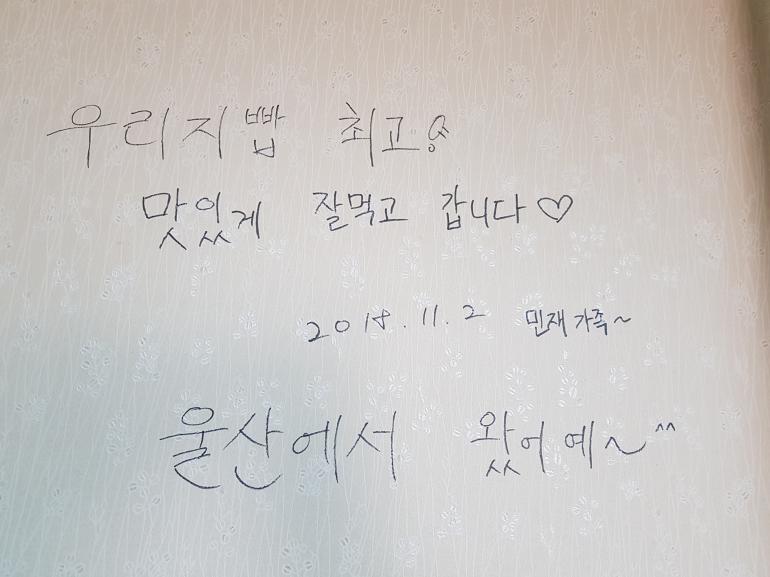 우리지빱 최고!
맛있게 잘먹고 갑니다♡
2018.11.2 민재가족~
울산에서 왔어예~^^